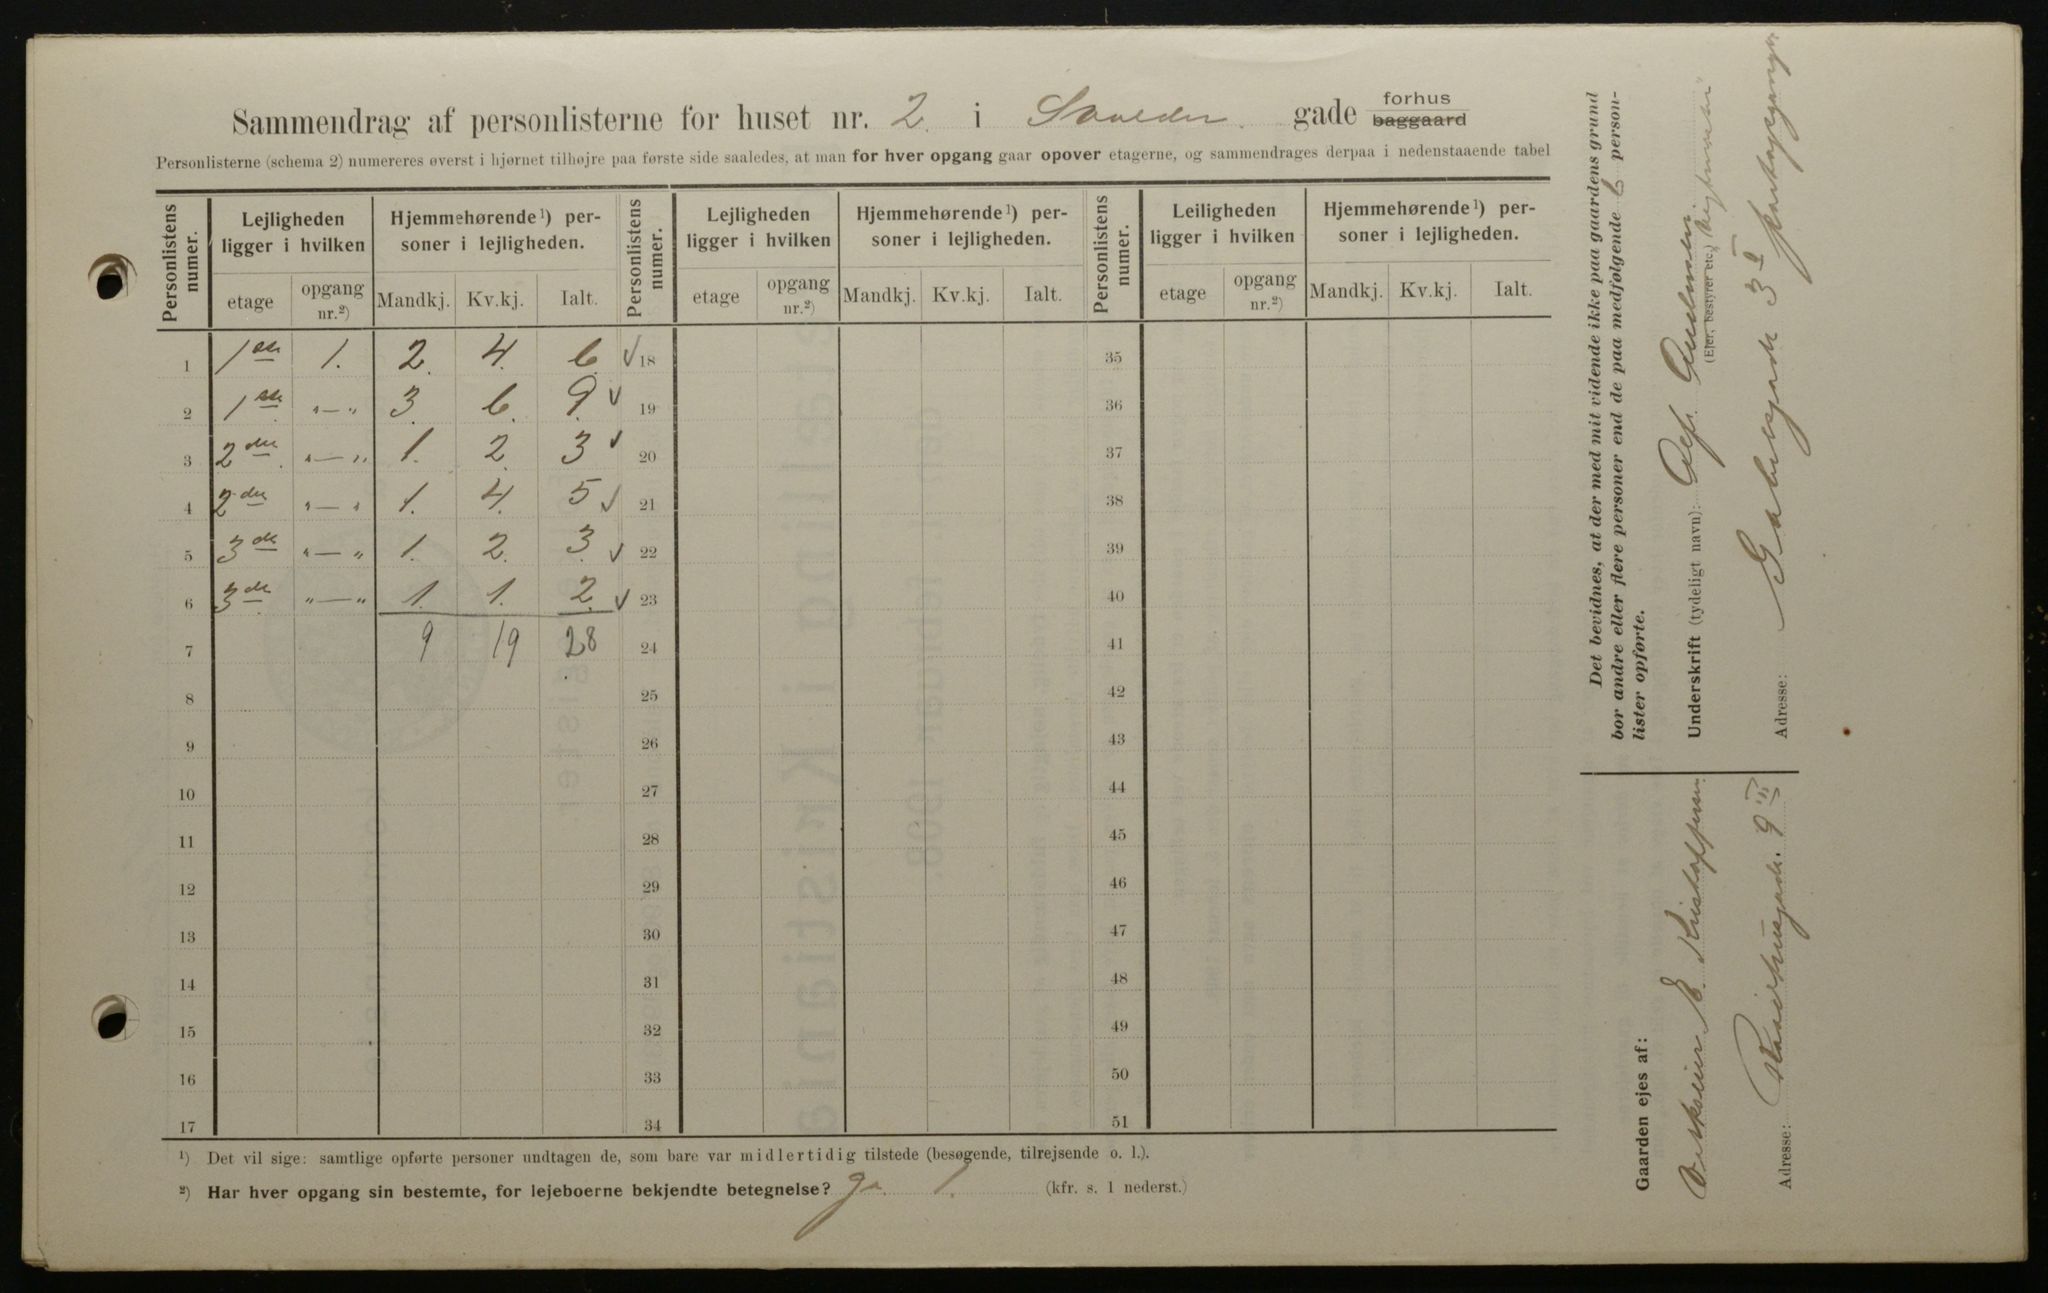 Sammendrag af personlisterne for huset nr. 2. i gade forhus baggaard
Personlisterne (schema 2) numereres øverst i hjørnet tilhøjre paa første side saaledes, at man for hver opgang gaar opover etagerne, og sammendrages derpaa i nedenstaaende tabel
Personlistens numer. Lejligheden ligger i hvilken Hjemmehørende¹) personer i lejligheden. Personlistens numer. Lejligheden ligger i hvilken Hjemmehørende¹) personer i lejligheden. Personlistens numer. Leiligheden ligger i hvilken Hjemmehørende¹) personer i lejligheden.
etage opgang nr.²) Mandkj. Kv.kj. Ialt. etage opgang nr.²) Mandkj. Kv.kj. Ialt. etage opgang nr.²) Mandkj. Kv.kj. Ialt.
1 1ste 1. 2. 4. 6. ✓ 18 35
2 1ste „ — „ 3. 6. 9. ✓ 19 36
3 2den „ — „ 1. 2. 3 ✓ 20 37
4 2den „ — „ 1. 4. 5 ✓ 21 38
5 3die „ — „ 1. 2. 3. ✓ 22 39
6 3die „ — „ 1. 1. 2. ✓ 23 40
7 9 19 28 24 41
8 25 42
9 26 43
10 27 44
11 28 45
12 29 46
13 30 47
14 31 48
15 32 49
16 33 50
17 34 51
¹) Det vil sige: samtlige opførte personer undtagen de, som bare var midlertidig tilstede (besøgende, tilrejsende o. l.).
²) Har hver opgang sin bestemte, for lejeboerne bekjendte betegnelse? ja 1. (kfr. s. 1 nederst.)
Det bevidnes, at der med mit vidende ikke paa gaardens grund
bor andre eller flere personer end de paa medfølgende 6 person-
lister opførte.
Underskrift (tydeligt navn):
(Ejer, bestyrer etc.)
Adresse: Gabelsgade 3 I
Gaarden ejes af:
E. Kristoffersen
Adresse: Raadhusgade. 9 III